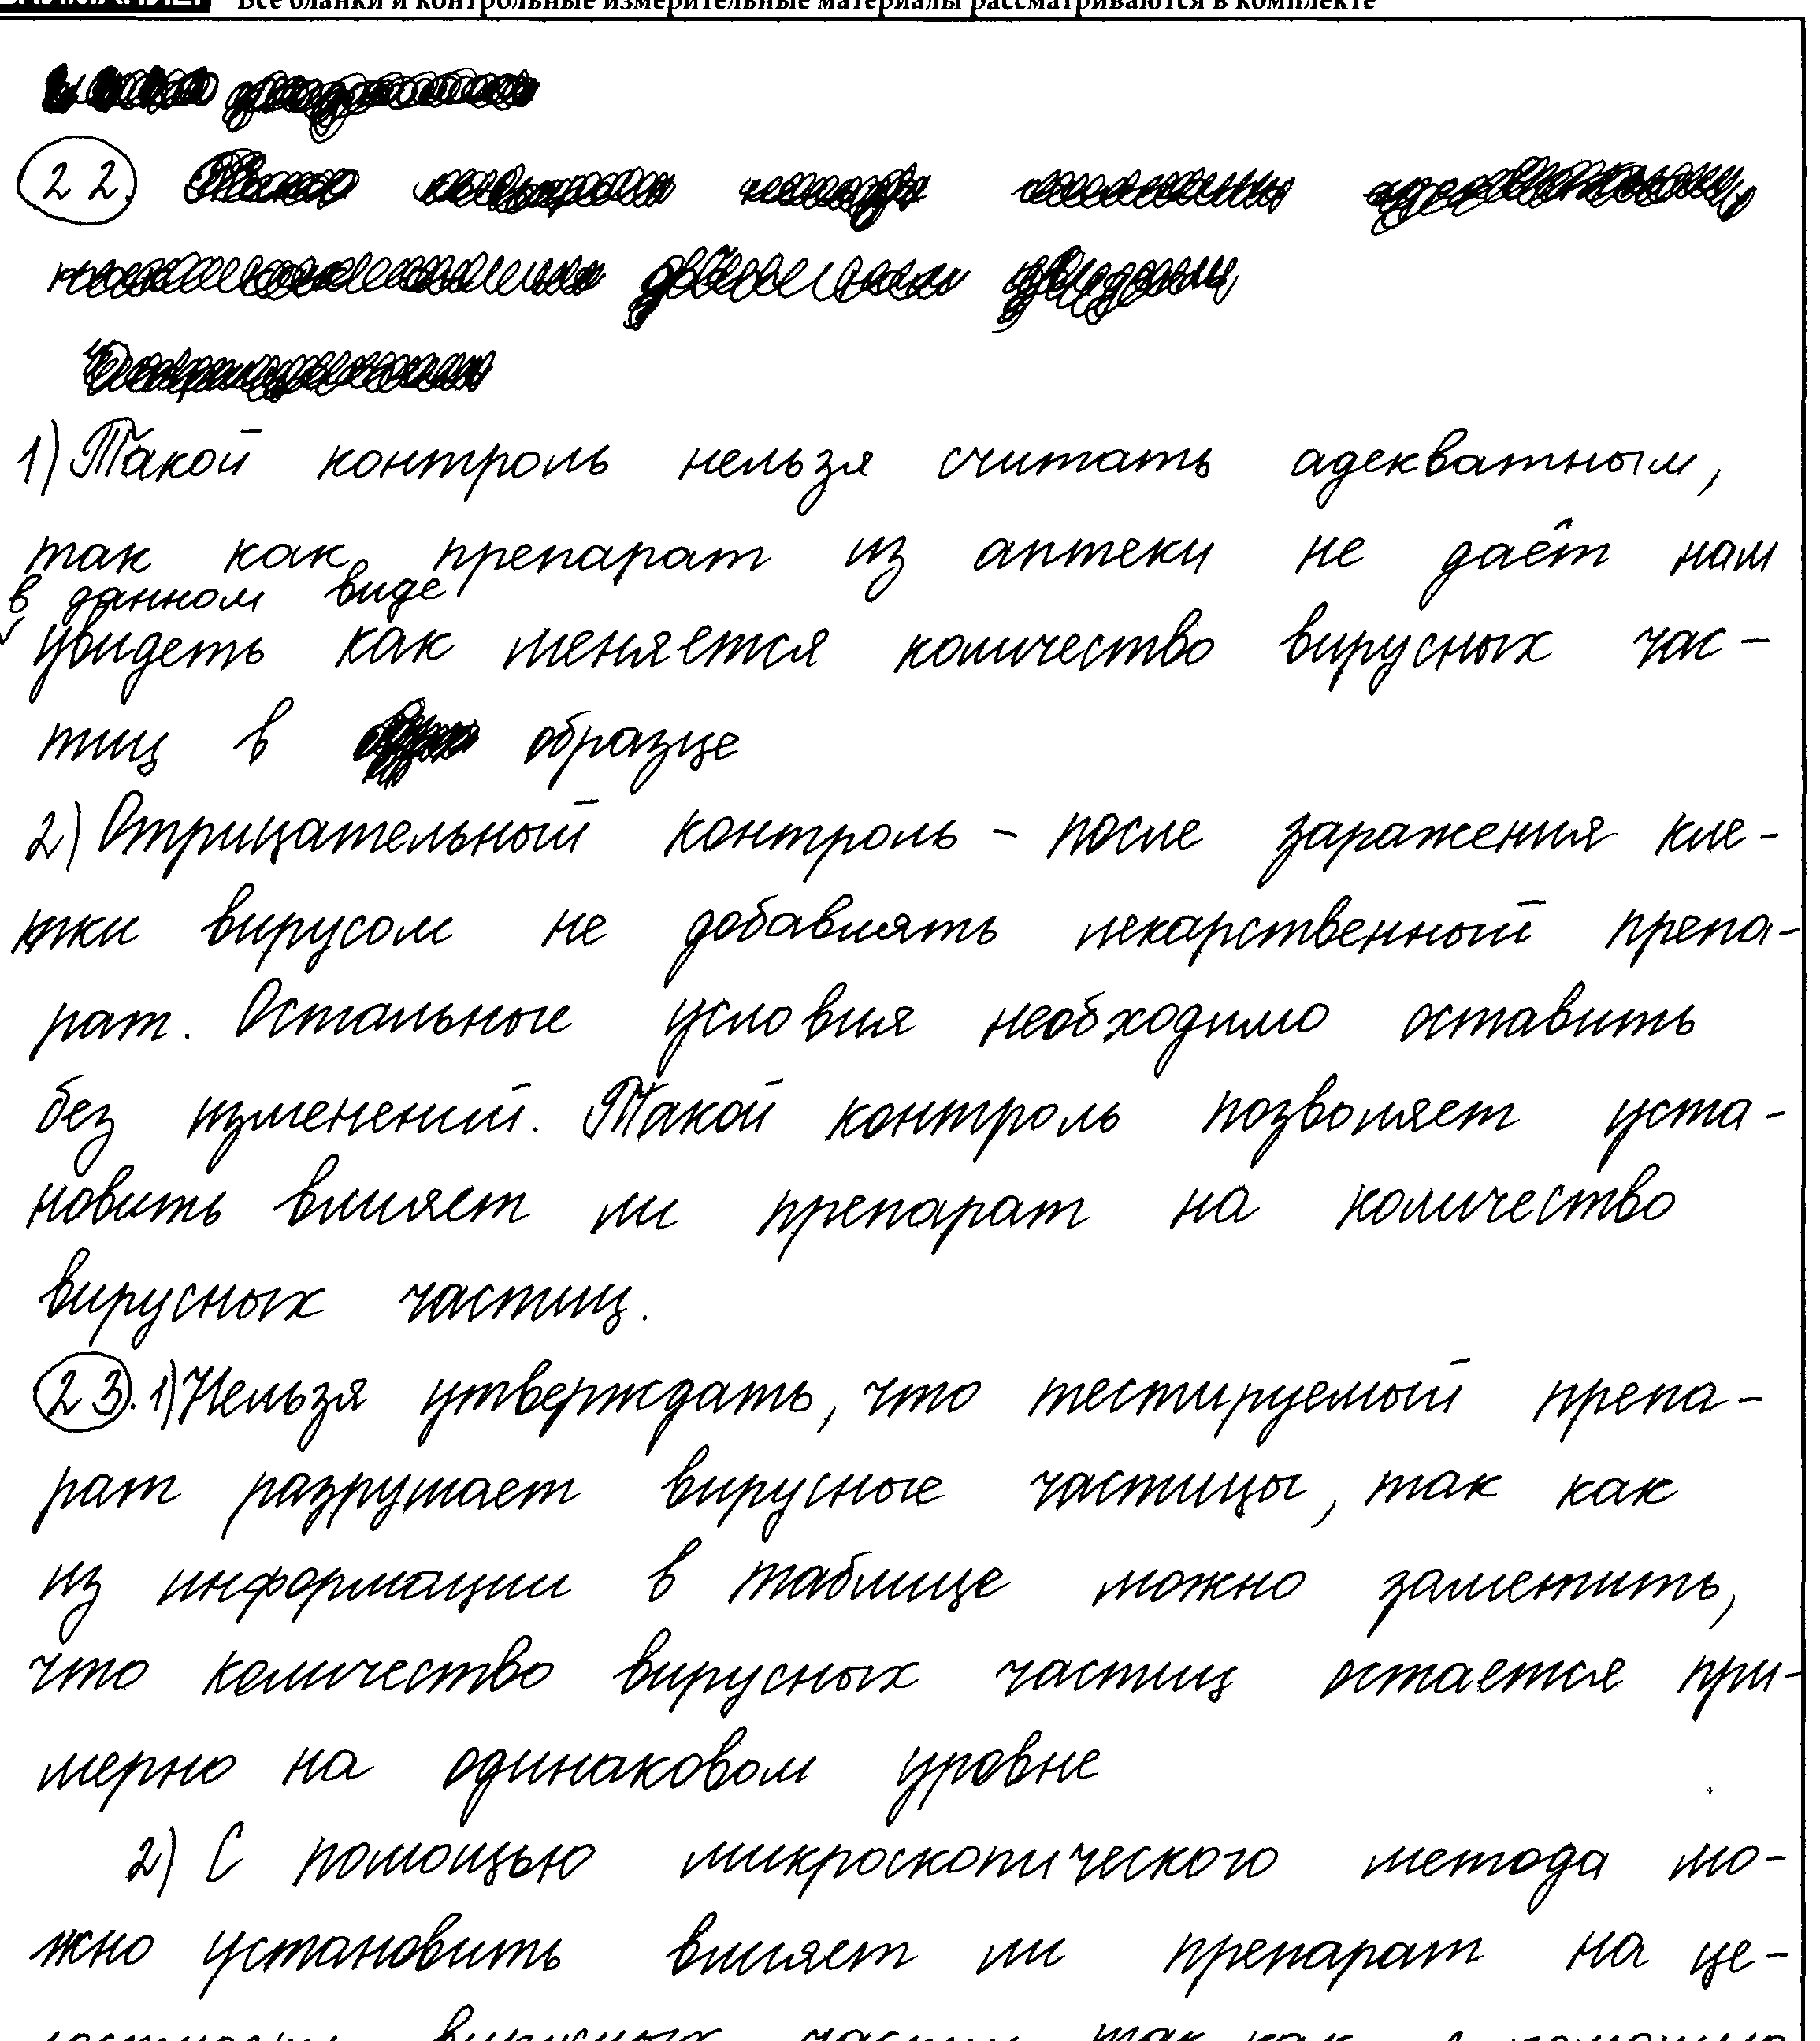 Все бланки и контрольные измерительные материалы рассматриваются в комплекте
22.
1) Такой контроль нельзя считать адекватным,
так как препарат из аптеки не даёт нам
в данном виде
увидеть как меняется количество вирусных час-
тиц в образце
2) Отрицательный контроль - после заражения кле-
тки вирусом не добавлять лекарственный препа-
рат. Остальные условия необходимо оставить
без изменений. Такой контроль позволяет уста-
новить влияет ли препарат на количество
вирусных частиц.
23. 1) Нельзя утверждать, что тестируемый препа-
рат разрушает вирусные частицы, так как
из информации в таблице можно заметить,
что количество вирусных частиц остается при-
мерно на одинаковом уровне
2) С помощью микроскопического метода мо-
жно установить влияет ли препарат на це-
вирусных частиц так как